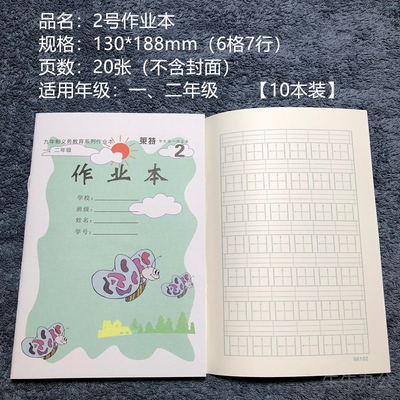 品名：2号作业本
规格：130*188mm（6格7行）
页数：20张（不含封面）
适用年级：一、二年级 【10本装】
九年制义务教育系列作业本
莱特
一二年级
2
作业本
学校：
班级：
姓名：
学号：